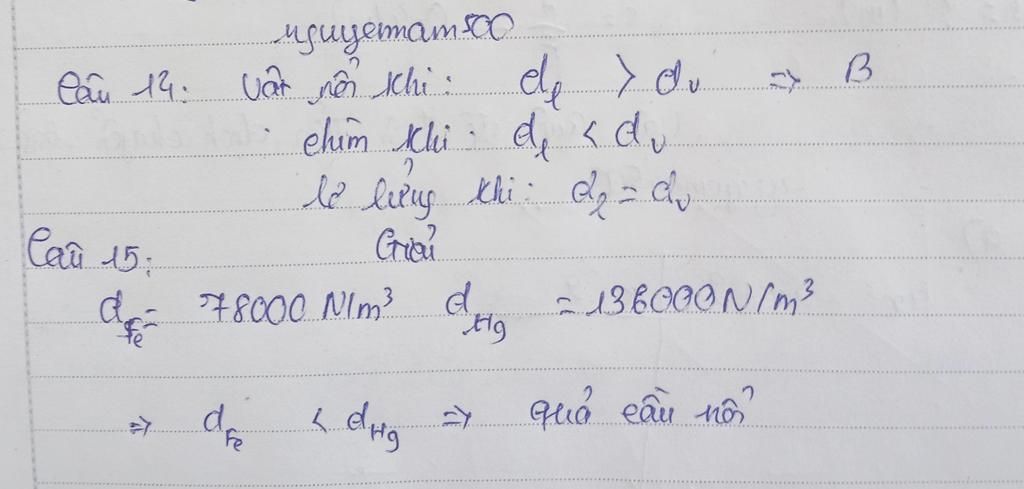 nguyenam500
Câu 14: Vật nổi khi: dₗ > dᵥ => B
chìm khi: dₗ < dᵥ
lơ lửng khi: dₗ = dᵥ
Câu 15: Giải
d_Fe = 78000 N/m³ d_Hg = 136000 N/m³
=> d_Fe < d_Hg => quả cầu nổi